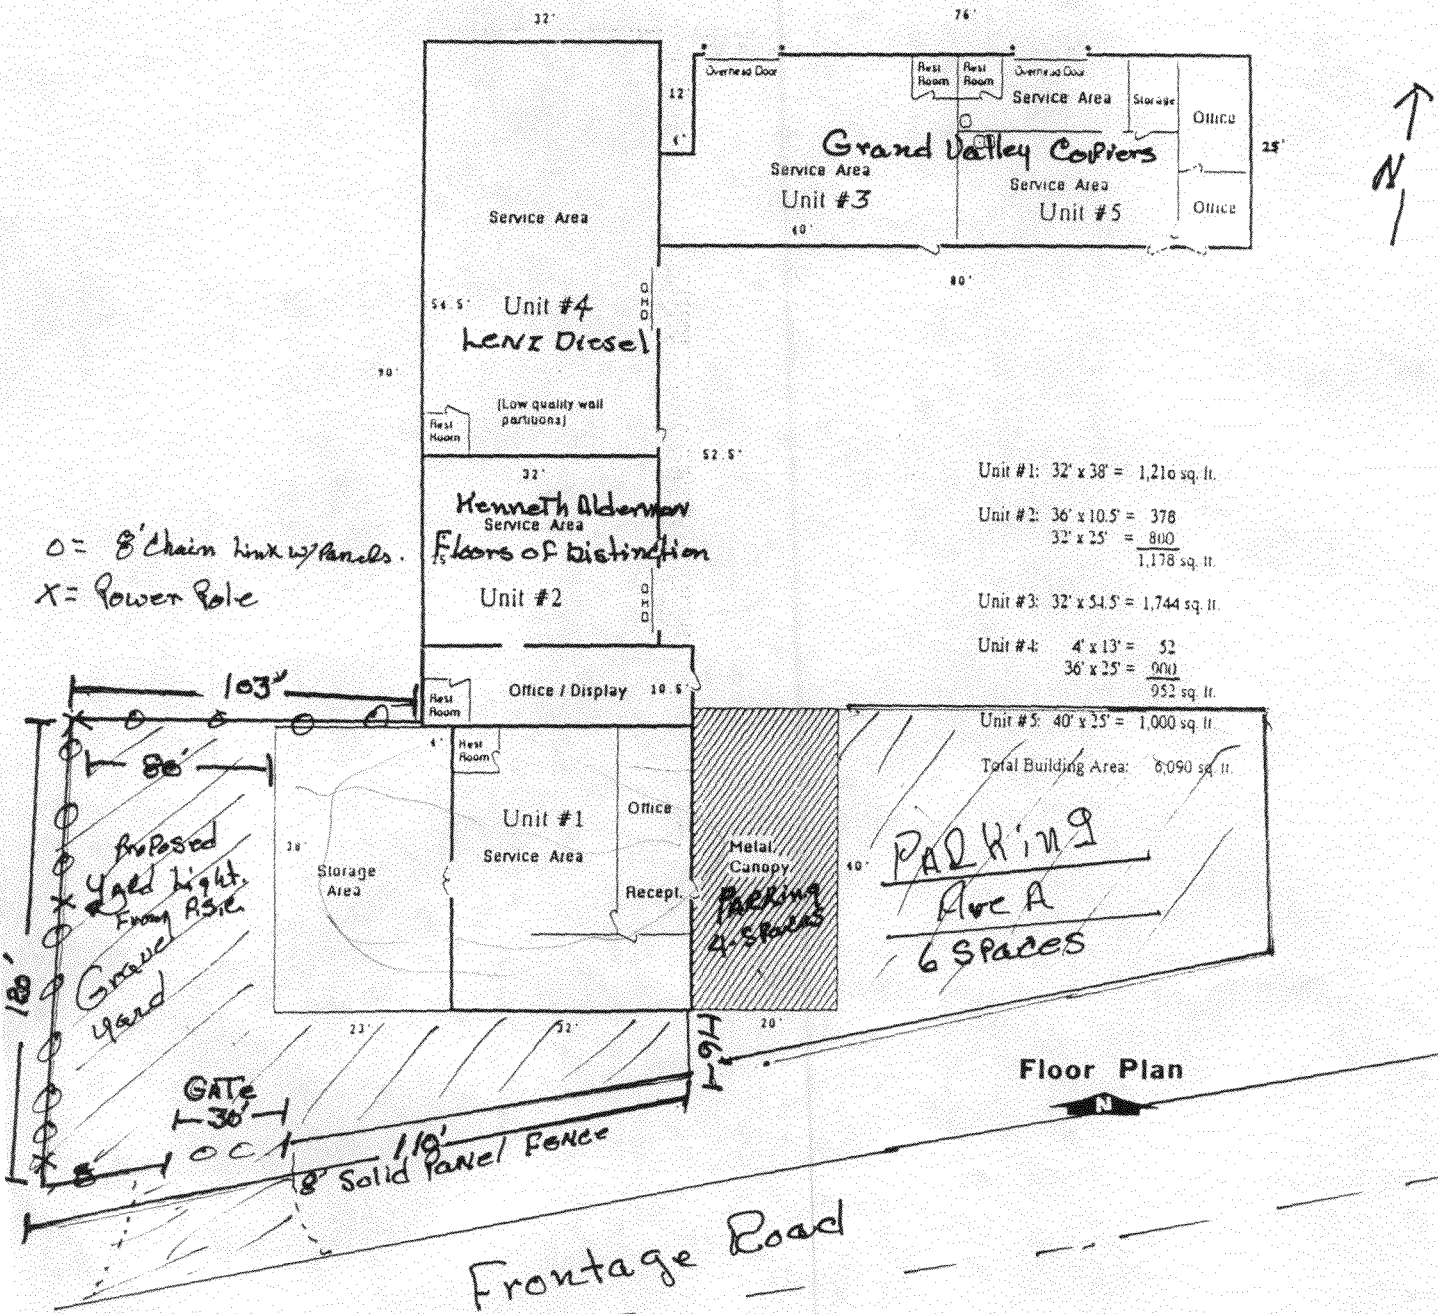 32'
76'
Overhead Door
Rest Room
Rest Room
Overhead Door
Service Area
Storage
Office
12
4'
Grand Valley Copiers
25'
N
Service Area
Unit #3
Service Area
Unit #5
Office
40'
80'
Service Area
54.5'
Unit #4
OHD
Lenz Diesel
90'
(Low quality wall
partitions)
Rest
Room
52.5'
32'
Kenneth Alderman
Service Area
Floors of Distinction
25
Unit #2
OHD
O = 8' Chain Link w/ Panels.
X = Power Pole
Unit #1: 32' x 38' = 1,216 sq. ft.
Unit #2: 36' x 10.5' = 378
32' x 25' = 800
1,178 sq. ft.
Unit #3: 32' x 54.5' = 1,744 sq. ft.
Unit #4: 4' x 13' = 52
36' x 25' = 900
952 sq. ft.
Unit #5: 40' x 25' = 1,000 sq. ft.
Total Building Area: 6,090 sq. ft.
103"
Rest
Room
Office / Display
10.5'
4'
Rest
Room
80'
Unit #1
Service Area
Office
Recept.
38'
Storage
Area
Metal
Canopy
Parking
4-Spaces
40'
Parking
Ave A
6 Spaces
Proposed
Yard Light.
From P.S.C.
Gravel
Yard
180'
23'
32'
20'
16'
GATE
30'
8
110'
8' Solid Panel Fence
Floor Plan
N
Frontage Road